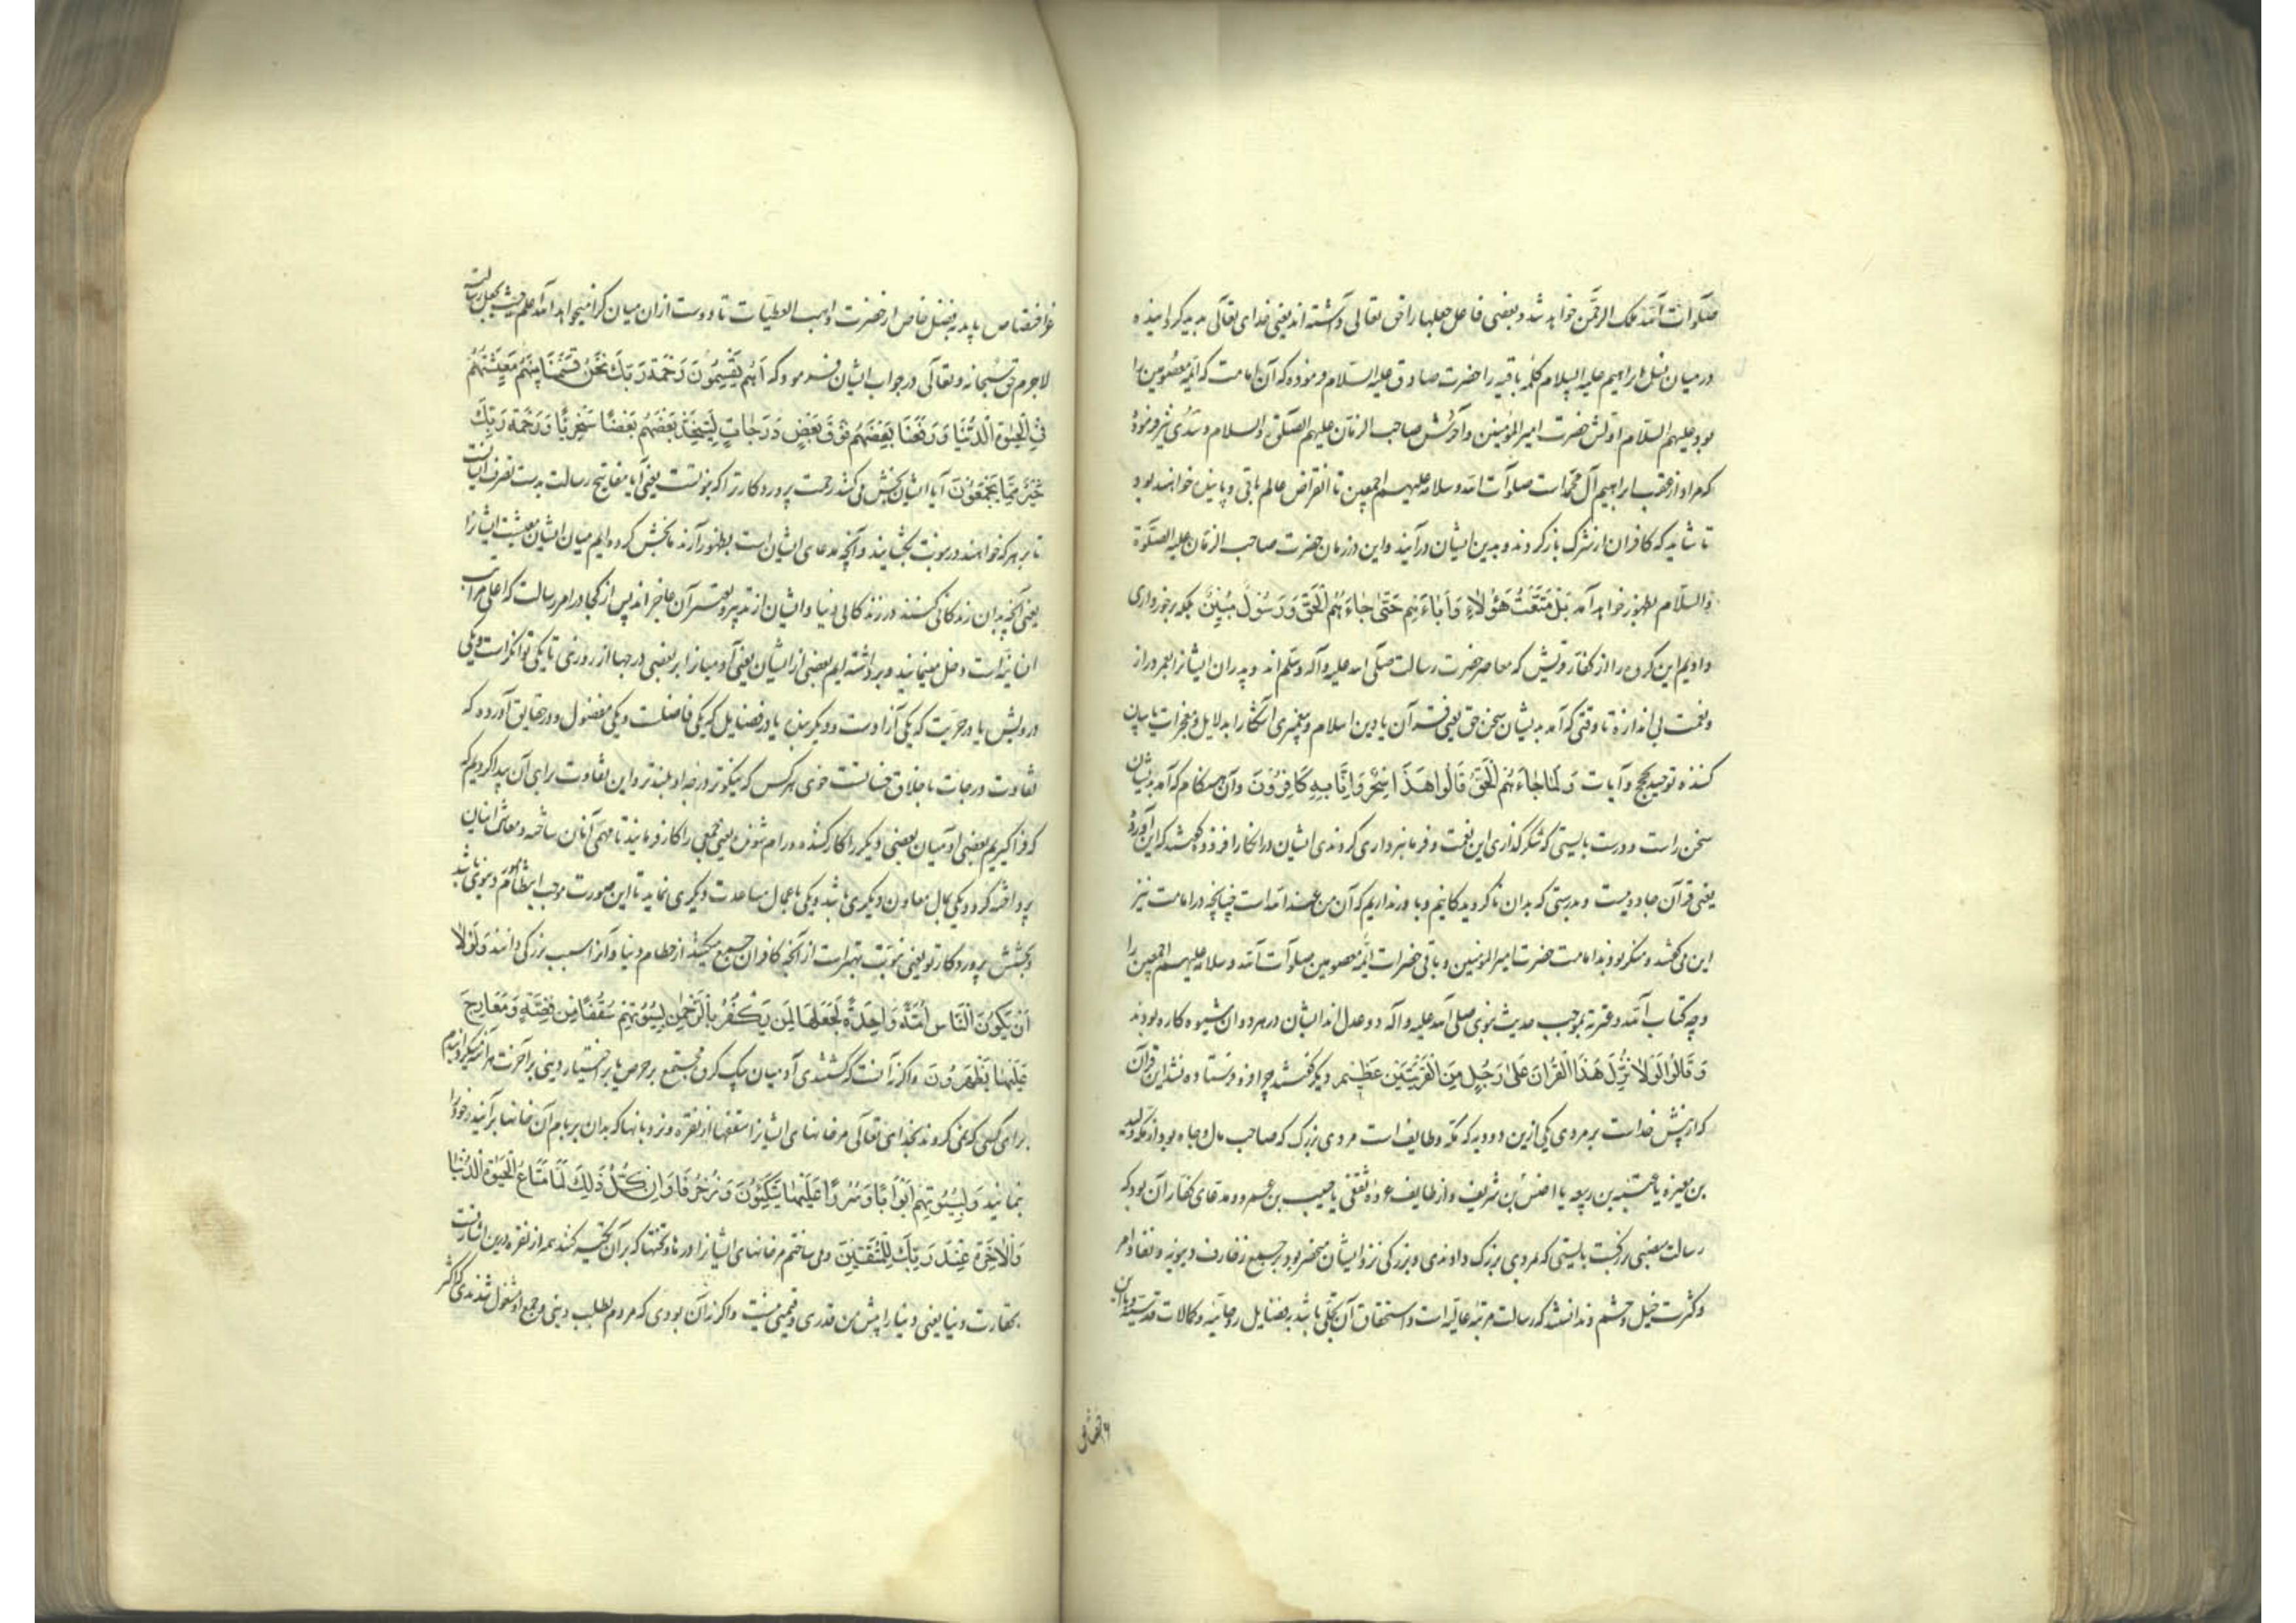 صلوات الله الملک الرحمن خواهد شد و بعضی فاعل جعلها را حق تعالی داشته‌اند یعنی خدای تعالی
در میان نسل ابراهیم علیه السلام کلمه باقیه را حضرت صادق علیه السلام فرموده که آن امامت که ائمه معصومین را
بود علیهم السلام اولش حضرت امیر المؤمنین و آخرش صاحب الزمان علیهم الصلوة و السلام و سدی نیز فرموده
که مراد از عقب ابراهیم آل محمد است صلوات الله و سلامه علیهم اجمعین تا انقراض عالم باقی و پاینده خواهند بود
تا شاید که کافران از شرک باز گردند و بدین ایشان درآیند و این در زمان حضرت صاحب الزمان علیه الصلوة
و السلام بظهور خواهد آمد بَلْ مَتَّعْتُ هٰؤُلَاءِ وَآبَاءَهُمْ حَتّٰی جَاءَهُمُ الْحَقُّ وَرَسُولٌ مُبِینٌ بلکه برخورداری
دادیم این گروه را از کفار قریش که معاصر حضرت رسالت صلی الله علیه و آله و سلم اند و پدران ایشان را بعمر دراز
و نعمت بی اندازه تا وقتی که آمد بدیشان سخن حق یعنی قرآن یا دین اسلام و پیغمبری آشکارا بدلایل و معجزات یا بیان
کننده توحید بحجج و آیات وَلَمَّا جَاءَهُمُ الْحَقُّ قَالُوا هٰذَا سِحْرٌ وَاِنَّا بِهِ کَافِرُونَ و آن هنگام که آمد بدیشان
سخن راست و درست بایستی که شکرگذاری این نعمت و فرمانبرداری کردندی ایشان در انکار افزودند و گفتند که این آورده
یعنی قرآن جادوییست و بدرستی که بدان ناگرویدگانیم و باور نداریم که آن من عند الله است چنانچه در امامت نیز
این می‌گفتند و منکر بودند امامت حضرت امیر المؤمنین و باقی حضرات ائمه معصومین صلوات الله و سلامه علیهم اجمعین را
و چه کتاب الله و عترة بموجب حدیث نبوی صلی الله علیه و آله دو عدل اند ایشان در هر دو آن شیوه کاره بودند
وَقَالُوا لَوْلَا نُزِّلَ هٰذَا الْقُرْآنُ عَلٰی رَجُلٍ مِنَ الْقَرْیَتَیْنِ عَظِیمٍ دیگر گفتند چرا فرو فرستاده نشد این قرآن
که از پیش خداست بر مردی یکی ازین دو دیه که مکه و طایف است مردی بزرگ که صاحب مال و جاه بود از مکه ولید
بن مغیره یا عتبة بن ربیعه یا اخنس بن شریف و از طایف عروه ثقفی یا حبیب بن عمرو و مدعای کفار آن بود که
رسالت منصبی بزرگست بایستی که بمردی بزرگ دادندی و بزرگی نزد ایشان منحصر بود بر جمیع زخارف دنیویه و نفاذ امر
و کثرت خیل و حشم و ندانستند که رسالت مرتبه عالیه است و استحقاق آن تحلی باشد بفضایل روحانیه و کمالات قدسیه و باین
اختصاص
عز اختصاص یابد بفضل خاص از حضرت واهب العطیات تا دوست از ان میان کرا میخواهد الله اعلم حیث یجعل رسالته
لاجرم حق سبحانه و تعالی در جواب ایشان فرمود که اَهُمْ یَقْسِمُونَ رَحْمَةَ رَبِّکَ نَحْنُ قَسَمْنَا بَیْنَهُمْ مَعِیشَتَهُمْ
فِی الْحَیٰوةِ الدُّنْیَا وَرَفَعْنَا بَعْضَهُمْ فَوْقَ بَعْضٍ دَرَجَاتٍ لِیَتَّخِذَ بَعْضُهُمْ بَعْضًا سُخْرِیًّا وَرَحْمَةُ رَبِّکَ
خَیْرٌ مِمَّا یَجْمَعُونَ آیا ایشان بخش می‌کنند رحمت پروردگار ترا که نبوتست یعنی آیا مفاتیح رسالت بدست تصرف ایشانست
تا بر هر که خواهند در نبوت بگشایند و آنچه مدعای ایشان است بظهور آرند ما بخش کرده‌ایم میان ایشان معیشت ایشان را
یعنی آنچه بدان زندگانی کنند در زندگانی دنیا و ایشان از تدبیر و تغییر آن عاجزند پس از کجا در امر رسالت که اعلی مراتب
انسانیة است دخل مینمایند و برداشته‌ایم بعضی از ایشان یعنی آدمیان را بر بعضی درجها از روزی تا یکی توانگر است و یکی
درویش یا در حریت که یکی آزادست و دیگری بنده یا در فضایل که یکی فاضلست و یکی مفضول و در حقایق آورده که
تفاوت درجات باخلاق حسنه است خوی هر کس که نیکوتر درجه او بلندتر و این تفاوت برای آن پیدا کردیم که
که فرا گیریم بعضی آدمیان بعضی دیگر را کار کننده و رام شونده یعنی جمعی را کار فرمایند تا مهم آنان ساخته و معاش اینان
پرداخته گردد و یکی بمال معاون دیگری باشد و یکی باعمال مساعدت دیگری نماید تا این صورت موجب انتظام امور دنیوی باشد
و بخشش پروردگار تو یعنی نبوت بهتر است از آنچه کافران جمع میکنند از حطام دنیا و آنرا سبب بزرگی دانند وَلَوْلَا
اَنْ یَکُونَ النَّاسُ اُمَّةً وَاحِدَةً لَجَعَلْنَا لِمَنْ یَکْفُرُ بِالرَّحْمٰنِ لِبُیُوتِهِمْ سُقُفًا مِنْ فِضَّةٍ وَمَعَارِجَ
عَلَیْهَا یَظْهَرُونَ و اگر نه آنست که گشتندی آدمیان یک گروه مجتمع بر حرص یا بر اختیار دینی بر آخرت هر آینه میگردانیدیم
برای کسی که نمی‌گرود بخدای تعالی مر خانهای ایشان را سقفها از نقره و نردبانها که بدان بر بام آن خانها برآیند و خود را
بنمایند وَلِبُیُوتِهِمْ اَبْوَابًا وَسُرُرًا عَلَیْهَا یَتَّکِئُونَ وَزُخْرُفًا وَاِنْ کُلُّ ذٰلِکَ لَمَّا مَتَاعُ الْحَیٰوةِ الدُّنْیَا
وَالْآخِرَةُ عِنْدَ رَبِّکَ لِلْمُتَّقِینَ و می ساختیم مر خانهای ایشان را درها و تختها که بر آن تکیه کنند همه از نقره درین اشارتست
بحقارت دنیا یعنی دنیا را پیش من قدری و قیمتی نیست و اگر نه آن بودی که مردم بطلب دینی و جمع او مشغول شدندی که اکثر